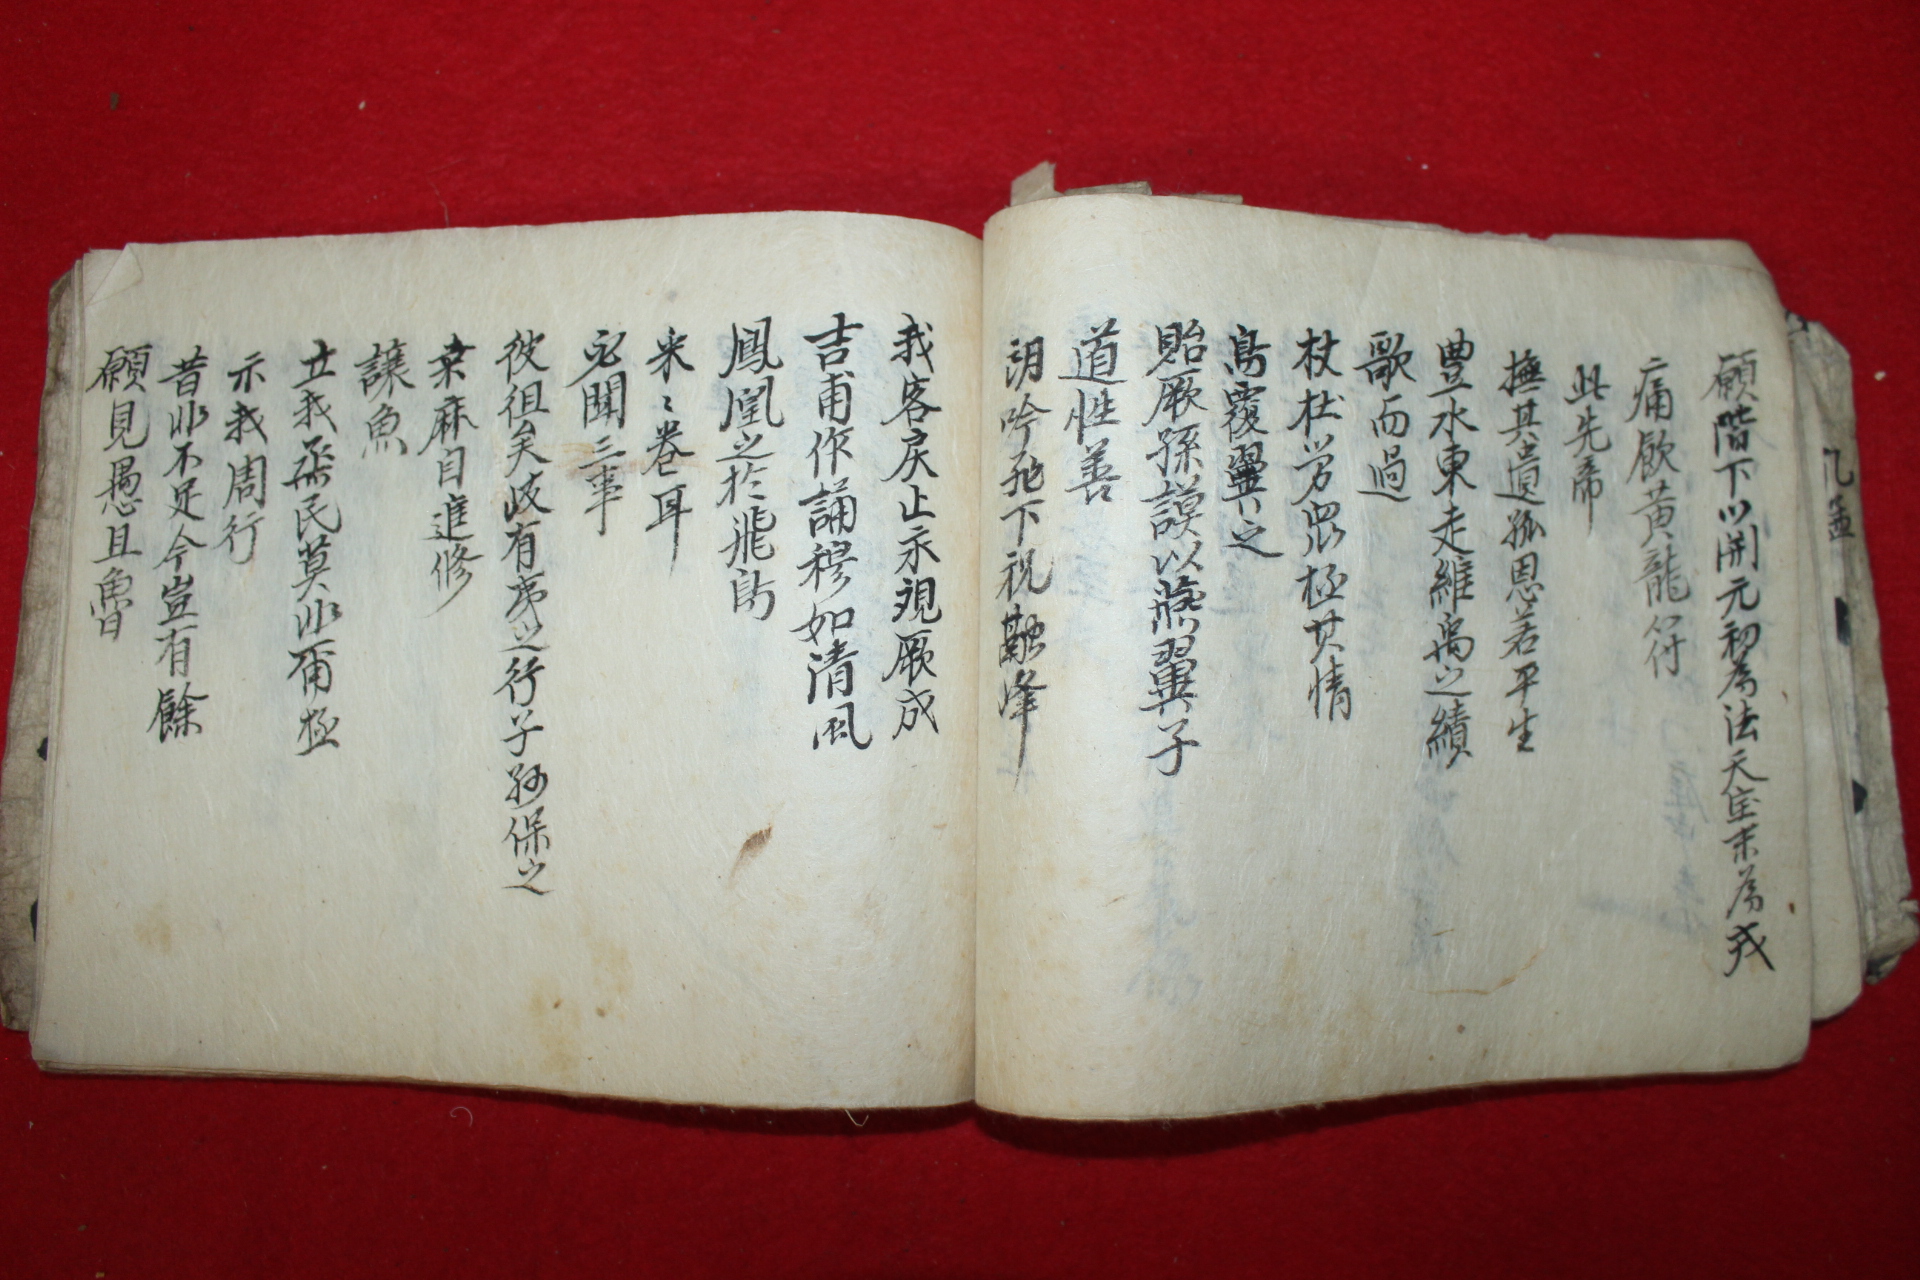 願陛下以開元初為法天宝末為戒
痛飮黃龍府
此先帝
撫其遺孤恩若平生
豊水東走維禹之績
歌而過
杖杜労還極其情
鳥覆翼之
貽厥孫謨以燕翼子
道性善
朗吟飛下祝融峰
我客戾止示観厥成
吉甫作誦穆如清風
鳳凰之於飛鳥
釆〻卷耳
必聞三事
彼徂矣岐有夷之行子孫保之
桑麻自進修
讓魚
立我烝民莫非爾極
示我周行
昔非不足今豈有餘
願見愚且魯
孟